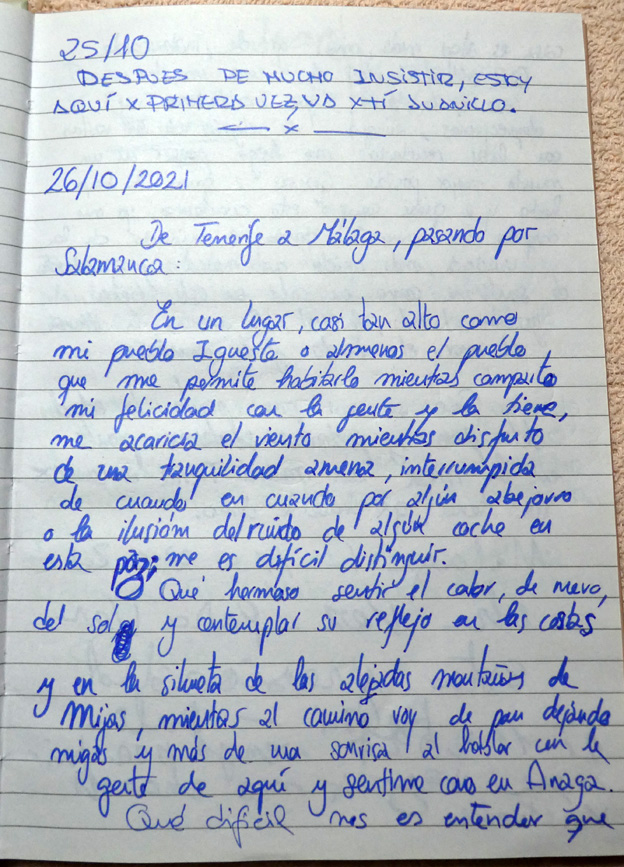 25/10
DESPUES DE MUCHO INSISTIR, ESTOY
AQUÍ X PRIMERA VEZ, VA X TÍ JUANILLO.
x
26/10/2021
De Tenerife a Málaga, pasando por
Salamanca:
En un lugar, casi tan alto como
mi pueblo Igueste o almenos el pueblo,
que me permite habitarlo mientras comparto
mi felicidad con la gente y la tierra,
me acaricia el viento mientras disfruto
de una tanquilidad amena, interrumpida
de cuando en cuando por algún abejorro
o la ilusión del ruido de algún coche en
esta paz; me es difícil distinguir.
Qué hermoso sentir el calor, de nuevo,
del sol y contemplar su reflejo en las costas
y en la silueta de las alejadas montañas de
Mijas, mientras al camino voy de pan dejando
migas y más de una sonrisa al hablar con la
gente de aquí y sentirme como en Anaga.
Qué difícil nos es entender que